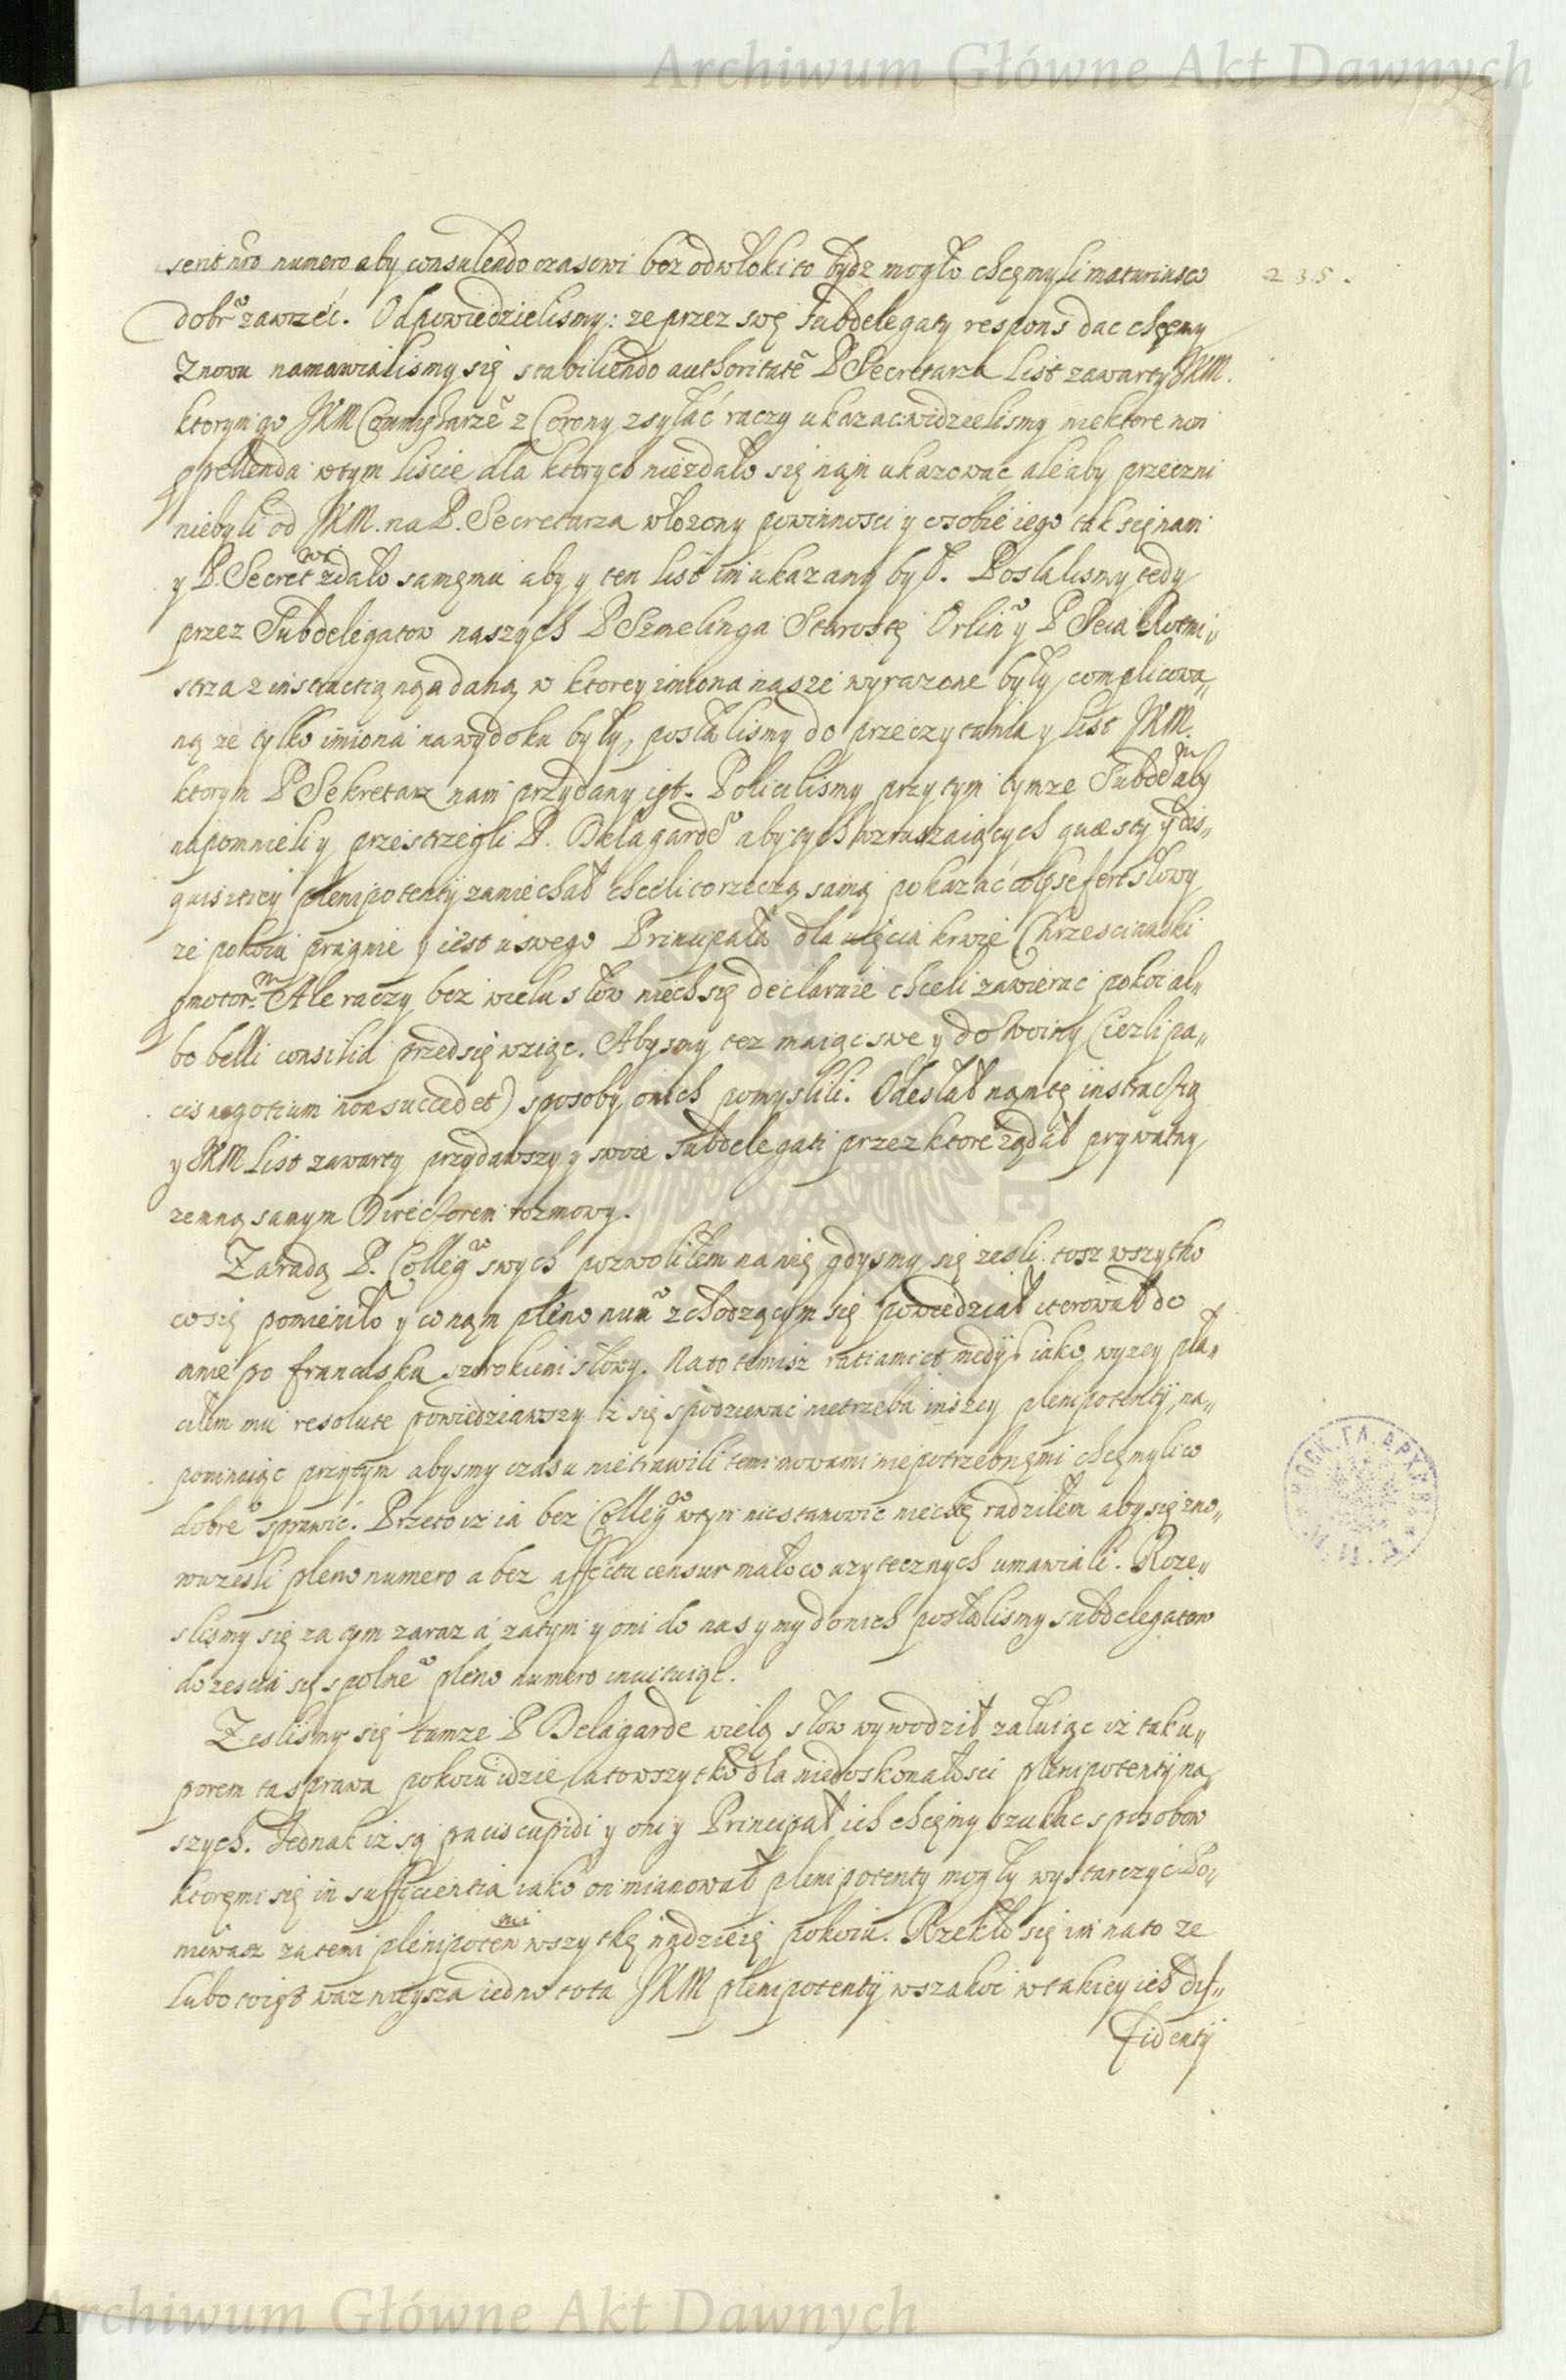 Archiwum Główne Akt Dawnych
235.
serit nro numero aby consulendo czasowi bez odwłoki to bydz mogło chcemyli maturius co
dobr° zawrzeć. Odpowiedzielismy: ze przez swe subdelegaty respons dac chcemy
Znowu namawialismy się stabiliendo authoritatē P Secretarza List zawarty JKM.
ktorym go JKM Commissarzē z Corony zsyłać raczy ukazac widzielismy niektore non
pellenda w tym liscie dla ktorych niezdało się nam ukazowac ale aby przeczni
niebyli od JKM. na P. Secretarza włozony powinnosci y osobie iego tak się nam
y P. Secretwi zdało samemu aby y ten list im ukazany był. Poslalismy tedy
przez Subdelegatow naszych P Szmelinga Starostę Orlin° y P Seia Rotmi„
strza z instructią nządaną w ktorey imiona nasze wyrazone były complicowa„
ną ze tylko imiona na wydoku były, posłalismy do przeczytania y list JKM.
ktorym P Sekretarz nam przydany iest. Policilismy przy tym tymze Subdelm aby
napomnieli y przestrzegli P. Delagarde° aby tych wzruszaiących quæsty y dis„
quisitiey plenipotentÿ zaniechał chceli to rzeczą samą pokazać co pse fert słowy
ze pokoiu pragnie y iest u swego Principała dla uięcia krwie Chrzescianski
pmotorm. Ale raczy bez wielu słow niech się declaruie chceli zawierac pokoi al„
bo belli consilia przedsię wziąc. Abysmy tez maiąc swe y do Woiny (iezli pa„
cis negotium non succedet) sposoby onich pomyslili. Odesłał nam tę instructią
y JKM List zawarty przydawszy y swoie subdelegati przez ktore ządał prywatny
zemną samym Directorem rozmowy.
Za radą P. Colleg° swych pozwoliłem na nię gdysmy się zesli. tosz wszytko
co się pomieniło y co nam pleno num° zchodzącym się powiedział iterował do
mnie po francusku szerokiemi słowy. Na to temisz ratiami et medÿs iako wyzey pła„
ciłem mu resolute powiedziawszy iz się spodziewac nietrzeba inszey plenipotentÿ, na„
pominaiąc przytym abysmy czasu nie trawili temi mowami niepotrzebnemi chcemyli co
dobre° sprawić. Przeto iz ia bez Colleg° w tym nic stanowic niechcę radziłem aby się zno„
wu zesli pleno numero a bez affectu censur mało co uzytecznych umawiali. Roze„
slismy się za tym zaraz a zatym y oni do nas y my do nich posłalismy subdelegatow
do zescia się spolne° pleno numero inuituiąc.
Zeslismy się tamze P Delagarde wielą słow wywodził załuiąc iz taku„
porem ta sprawa pokoiu idzie, a to wszytko dla niedoskonałosci plenipotentÿ na
szych. Jednak iz są pacis cupidi y oni y Principał ich chcemy szukac sposobow
ktoremi się in sufficientia iako on mianował plenipotenty mogły wystarczyć Po„
niewasz za temi plenipotenmi wszytkę nadzieię pokoiu. Rzekło się im na to ze
lubo iest wazneysza iedno tota JKM plenipotentÿ wszakoi w takiey iest dif„
fidentÿ
Archiwum Główne Akt Dawnych